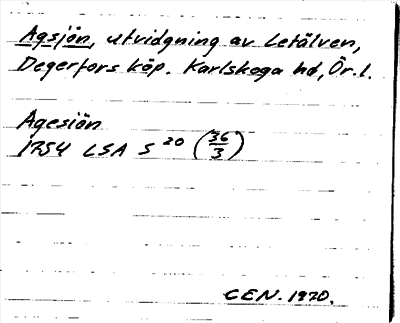 Agsjön, utvidgning av Letälven,
Degerfors köp. Karlskoga hd, Ör. l.
Agesiön
1754 LSA S 20 (36/3)
CEN. 1970.